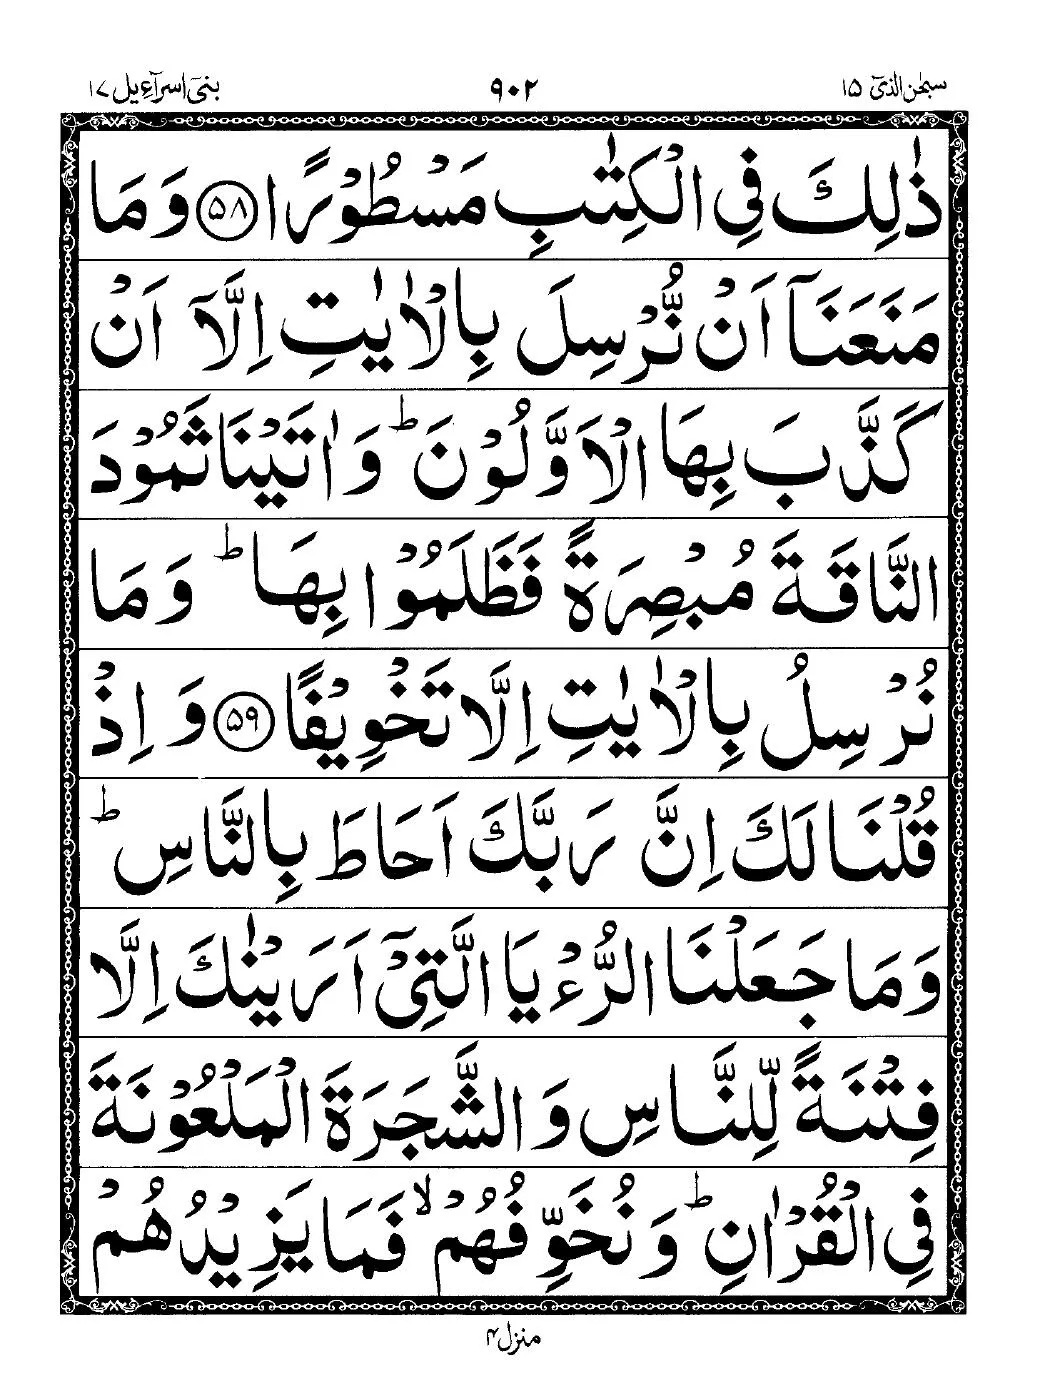 سبحٰن الذیٓ ۱۵
۹۰۲
بنیٓ اسرآءیل ۱۷
ذٰلِكَ فِی الْكِتٰبِ مَسْطُوْرًا ﴿۵۸﴾ وَ مَا
مَنَعَنَاۤ اَنْ نُّرْسِلَ بِالْاٰیٰتِ اِلَّاۤ اَنْ
كَذَّبَ بِهَا الْاَوَّلُوْنَ ؕ وَ اٰتَیْنَا ثَمُوْدَ
النَّاقَةَ مُبْصِرَةً فَظَلَمُوْا بِهَا ؕ وَ مَا
نُرْسِلُ بِالْاٰیٰتِ اِلَّا تَخْوِیْفًا ﴿۵۹﴾ وَ اِذْ
قُلْنَا لَكَ اِنَّ رَبَّكَ اَحَاطَ بِالنَّاسِ ؕ
وَ مَا جَعَلْنَا الرُّءْیَا الَّتِیْۤ اَرَیْنٰكَ اِلَّا
فِتْنَةً لِّلنَّاسِ وَ الشَّجَرَةَ الْمَلْعُوْنَةَ
فِی الْقُرْاٰنِ ؕ وَ نُخَوِّفُهُمْ ۙ فَمَا یَزِیْدُهُمْ
منزل ۴